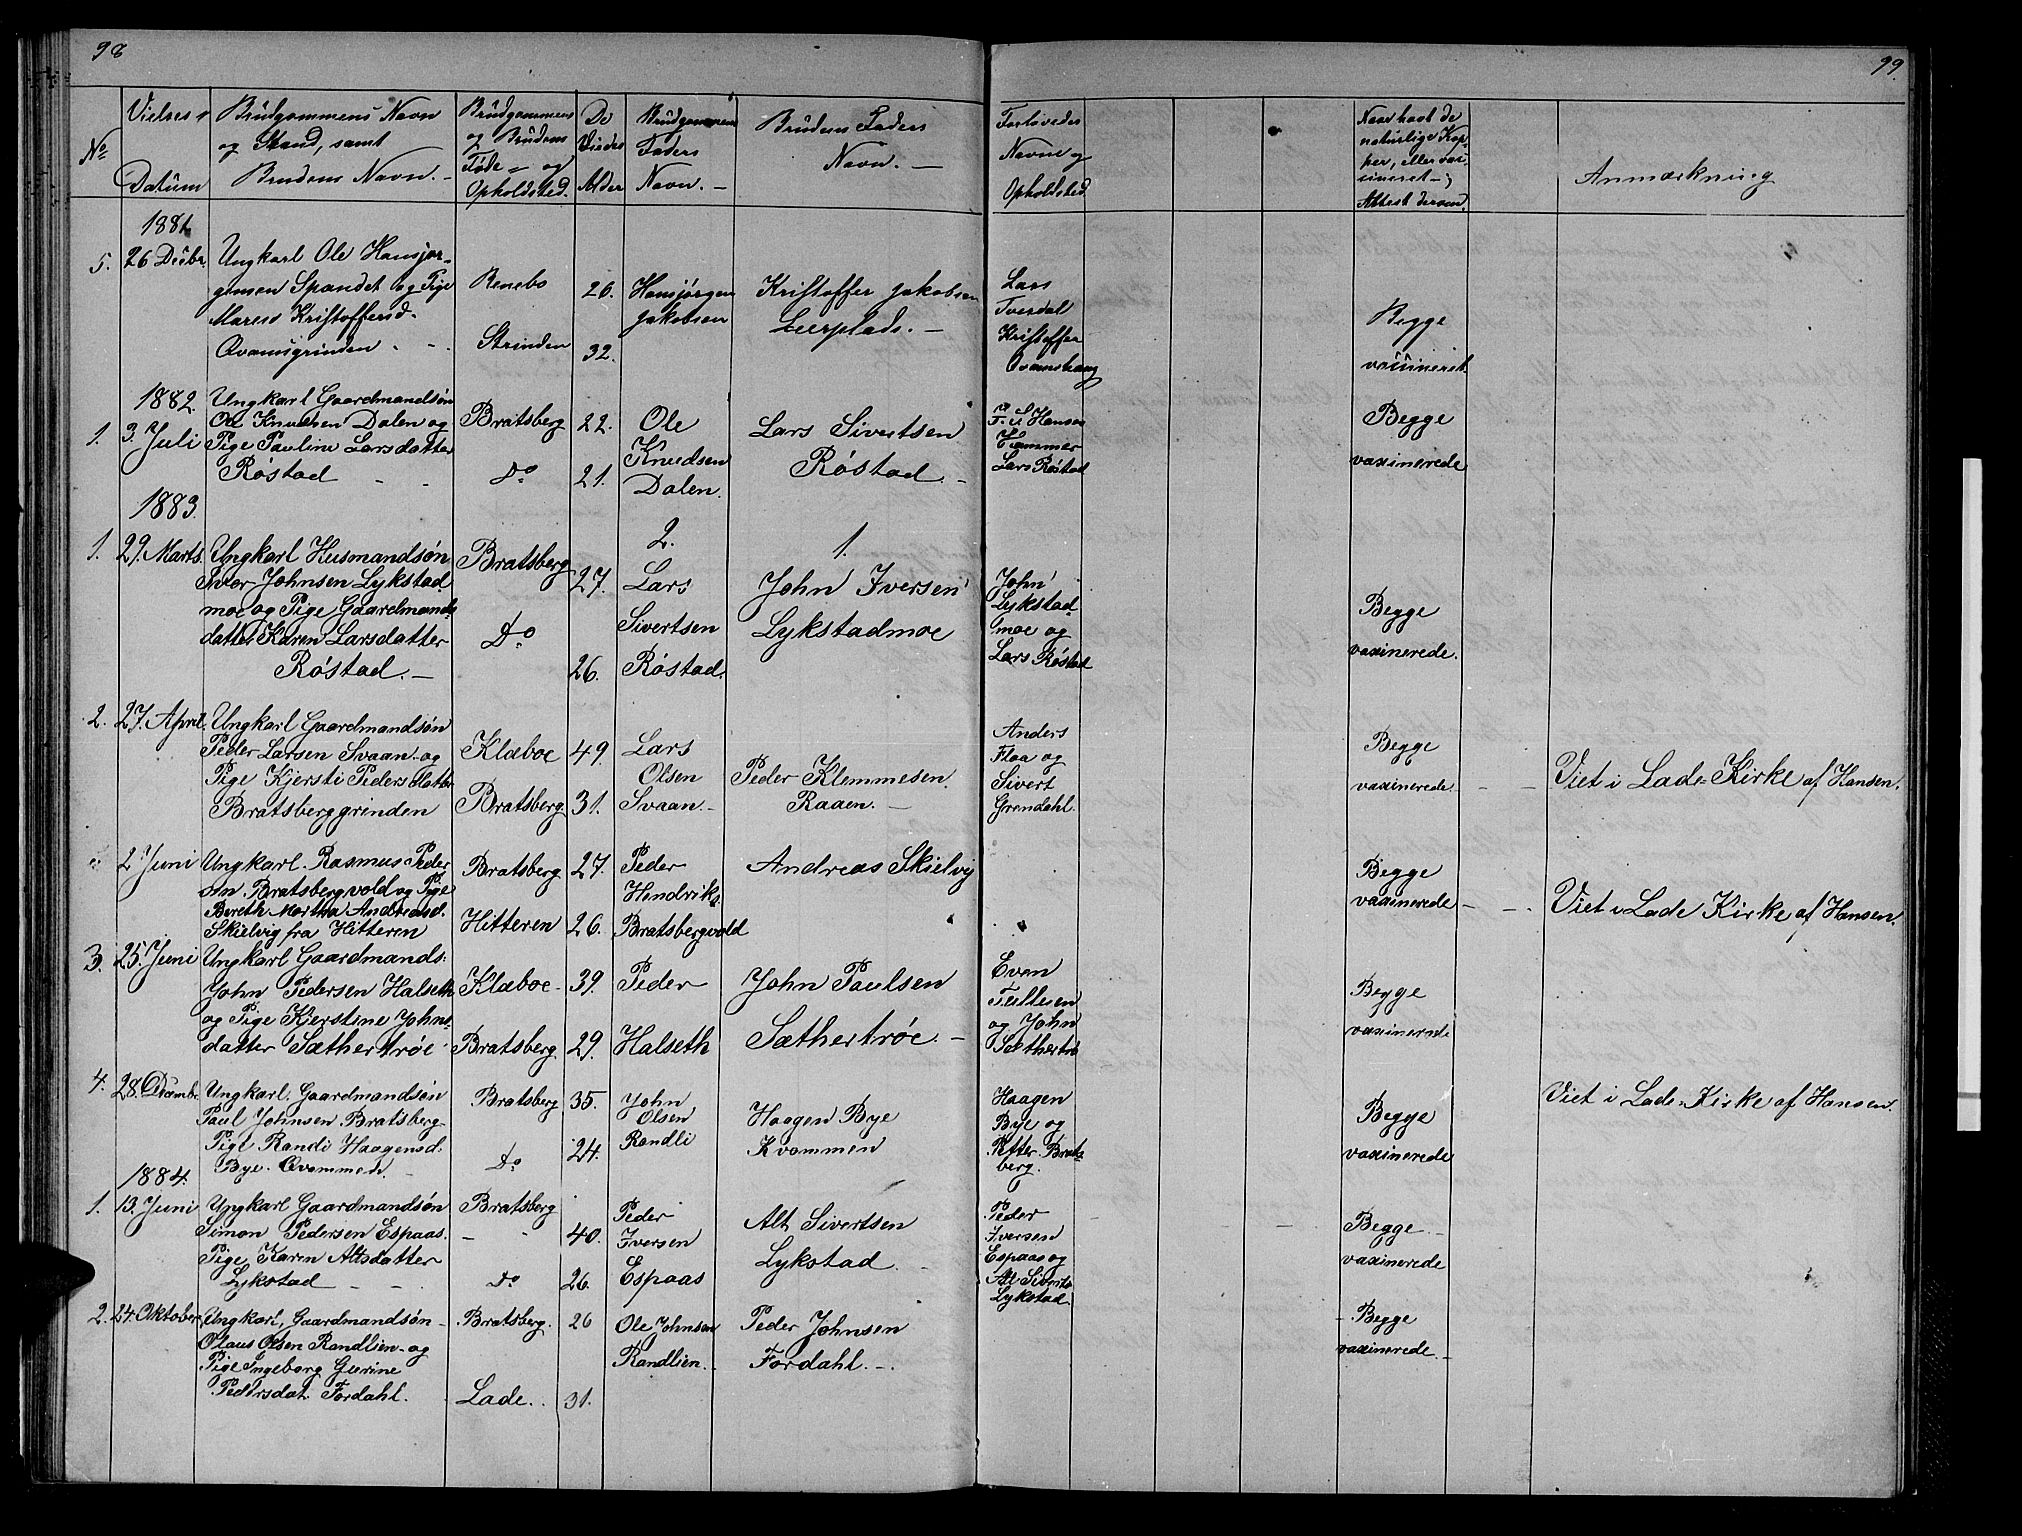 98
99.
No
Vielses
Datum
Brudgommens Navn
og Stand, samt
Brudens Navn. –
Brudgommens
og Brudens
Føde- og
Opholdsted.
De
Viedes
Alder
Brudgommens
Faders
Navn. –
Brudens Faders
Navn. –
Forlovedes
Navne og
Opholdsted.
Naar havt de
naturlige Kop-
per, eller vac-
cineret –;
Attest derom.
Anmærkning
1881.
5. 26 Decbr.
Ungkarl Ole Hansjør-
gensen Spandet og Pige
Maren Kristoffersd.
Qvamsgrinden
Renebo
Strinden
26.
32.
Hansjørgen
Jakobsen
Kristoffer Jakobsen
Leerplads. –
Lars
Tverdal
Kristoffer
Qvamshaug
Begge
vaccineret.
1882.
1. 3. Juli
Ungkarl Gaardmandsøn
Ole Knudsen Dalen og
Pige Pauline Larsdatter
Røstad
Bratsberg
Do
22.
21.
Ole
Knudsen
Dalen.
Lars Sivertsen
Røstad. –
Hansen
Hammer
Lars Røstad
Begge
vaxinerede
1883.
1. 29. Marts.
Ungkarl Husmandsøn
Ivar Johnsen Lykstad
moe og Pige Gaardmands
datter Karen Larsdatter
Røstad. –
Bratsberg
Do
27.
26.
2.
Lars
Sivertsen
Røstad.
1.
John Iversen
Lykstadmoe
John
Lykstad-
moe og
Lars Røstad
Begge
vaxinerede.
2. 27. April.
Ungkarl Gaardmandsøn
Peder Larsen Svaan og
Pige Kjersti Pedersdatter
Bratsberggrinden
Klæboe
Bratsberg
49.
31.
Lars
Olsen
Svaan. –
Peder Klemmesen
Raaen. –
Anders
Flaa og
Sivert
Grendahl.
Begge
vaxinerede
Viet i Lade Kirke af Hansen.
2 Juni
Ungkarl Rasmus Peder
søn Bratsbergvold og Pige
Bereth Martha Andreasd.
Skielvig fra Hitteren
Bratsberg
Hitteren
27.
26.
Peder
Hendrik
Bratsbergvold
Andreas Skielvig
Begge
vaxinerede
Viet i Lade Kirke af Hansen.
3. 25. Juni
Ungkarl Gaardmands:
John Pedersen Halseth
og Pige Kjerstine Johns-
datter Sæthertrøe
Klæboe
Bratsberg.
39.
29.
Peder
Halseth
John Paulsen
Sæthertrøe. –
Even
Tulluen
og John
Sæthertrø
Begge
vaxinerede
4. 28. Decembr.
Ungkarl. Gaardmandsøn
Paul Johnsen Bratsberg
Pige Randi Haagensd.
Bye Qvammen.
Bratsberg
Do
35.
24.
John
Olsen
Randli
Haagen Bye
Kvammen
Haagen
Bye og
Petter Brats
berg.
Begge
vaxinerede
Viet i Lade Kirke af Hansen.
1884.
1. 13. Juni
Ungkarl Gaardmandsøn
Simon Pedersen Espaas.
Pige Karen Altsdatter
Lykstad
Bratsberg
Do
40.
26.
Peder
Iversen
Espaas
Alt Sivertsen
Lykstad
Peder
Iversen
Espaas og
Alt Siverts
Lykstad.
Begge
vaxinerede
2. 24. Oktober
Ungkarl, Gaardmandsøn
Olaus Olsen Randlien og
Pige Ingeborg Gurine
Pedersdat. Fordahl.
Bratsberg.
Lade.
26
31.
Ole Johnsen
Randlien.
Peder Johnsen
Fordahl. –
Begge
vaxinerede. –